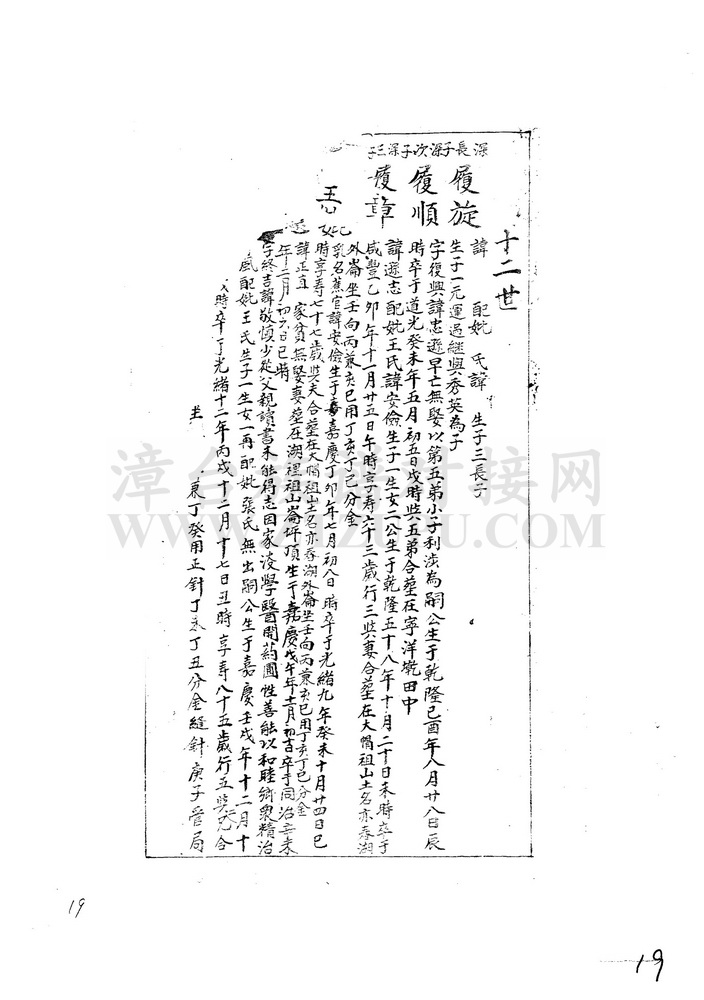 十二世
深長子
履旋
諱 配妣 氏諱 生子三長子
生子一元運過継與秀英為子
深次子
履順
字復興諱忠遜早亡無娶以第五弟小子利涉為嗣公生于乾隆己酉年八月廿八日辰
時卒于道光癸未年五月初五日戌時與五弟合墓在寧洋墘田中
深三子
履章
諱遜志配妣王氏諱安儉生子一生女二公生于乾隆五十八年十月二十日未時卒于
咸豐乙卯年十一月廿五日午時享寿六十三歲行三與妻合墓在大帽祖山土名亦春湖
外崙坐壬向丙兼亥巳用丁亥丁巳分金
妣
乳名蕉官諱安儉生于嘉慶丁卯年七月初八日 時卒于光緒九年癸未十月廿四日巳
時享寿七十七歲與夫合墓在大帽祖山土名亦春湖外崙坐壬向丙兼亥巳用丁亥丁巳分金
諱正直 家貧無娶妻墓在湖裡祖山崙坪頂生于嘉慶戊午年十二月初 卒于同治辛未
年十二月初六日巳時
字終吉諱敬慎少從父親讀書未能得志因家後學醫開葯圃性善能以和睦鄉衆精治
配妣王氏生子一生女一再配妣張氏無出嗣公生于嘉慶壬戌年十二月十
時卒于光緒十二年丙戌十二月十七日丑時享寿八十五歲行五與二兄合
坐 兼丁癸用正針丁未丁丑分金縫針庚子管局
漳台族譜对接网
19
19